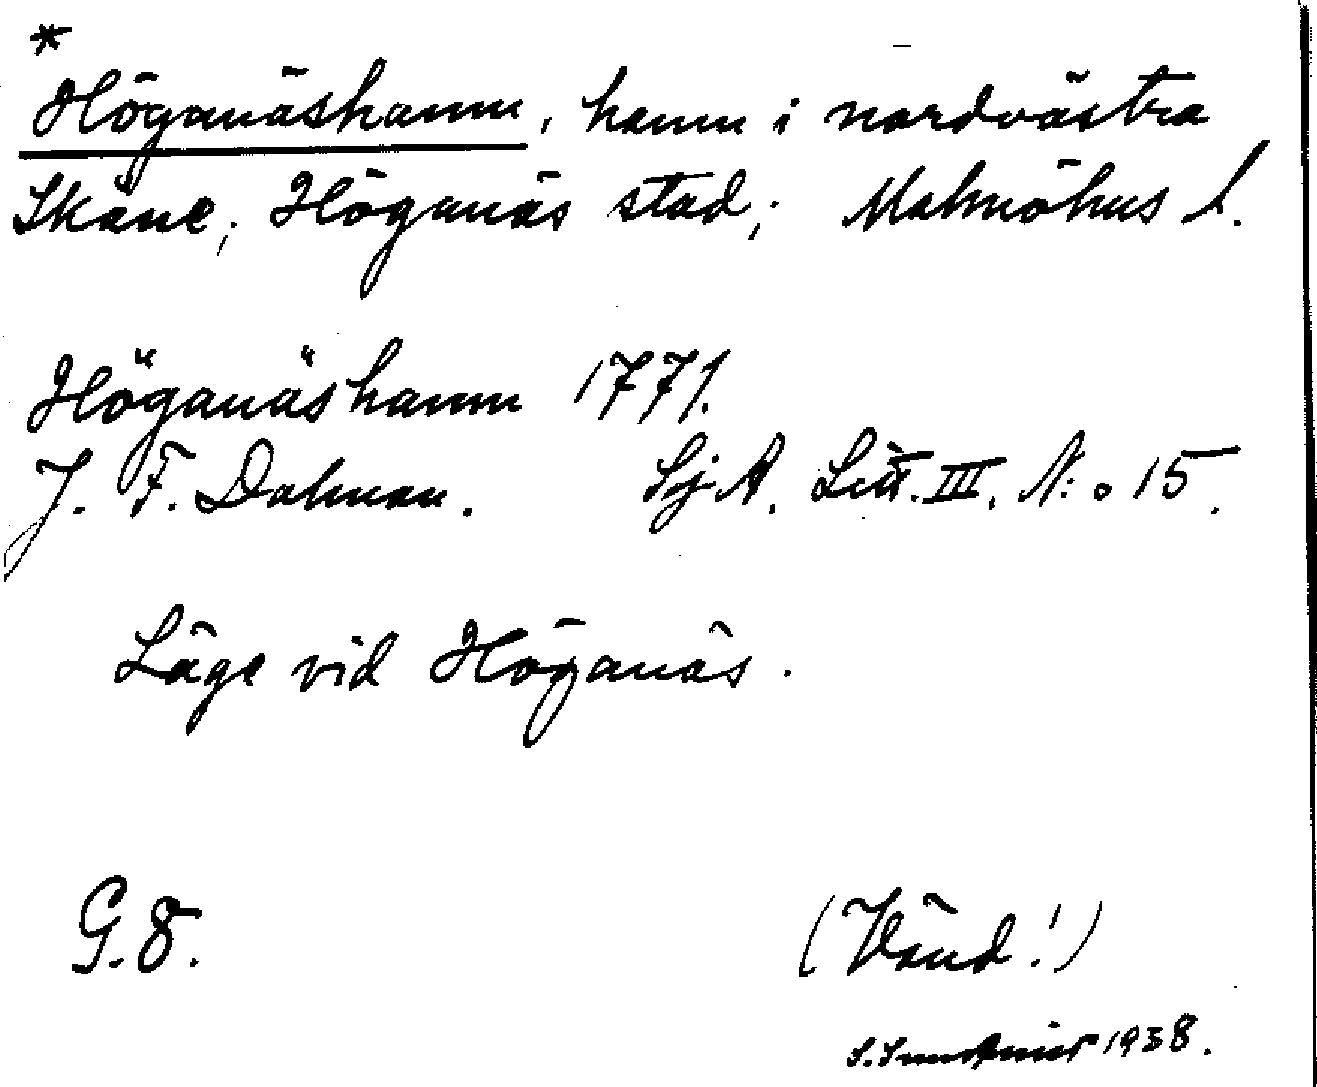 *
Höganäshamn, hamn i nordvästra
Skåne; Höganäs stad; Malmöhus l.
Höganäshamn 1771.
J. F. Dalman. Sj A. Litt. III. N:o 15.
Läge vid Höganäs.
G.8.
(Vänd!)
S. 1938.